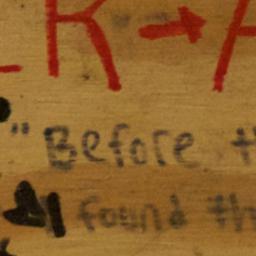 R → A
" Before th
found th